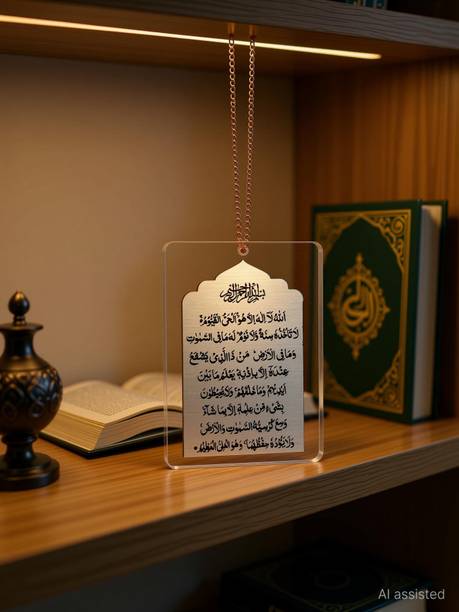 بسم الله الرحمن الرحيم
اَللهُ لَآ اِلٰهَ اِلَّا هُوَ اَلْحَىُّ الْقَيُّوْمُ
لَا تَاْخُذُهٗ سِنَةٌ وَّلَا نَوْمٌ لَهٗ مَا فِى السَّمٰوٰتِ
وَمَا فِى الْاَرْضِ مَنْ ذَا الَّذِىْ يَشْفَعُ
عِنْدَهٗٓ اِلَّا بِاِذْنِهٖ يَعْلَمُ مَا بَيْنَ
اَيْدِيْهِمْ وَمَا خَلْفَهُمْ وَلَا يُحِيْطُوْنَ
بِشَىْءٍ مِّنْ عِلْمِهٖٓ اِلَّا بِمَا شَآءَ
وَسِعَ كُرْسِيُّهُ السَّمٰوٰتِ وَالْاَرْضَ
وَلَا يَـُٔوْدُهٗ حِفْظُهُمَا وَهُوَ الْعَلِىُّ الْعَظِيْمُ
AI assisted